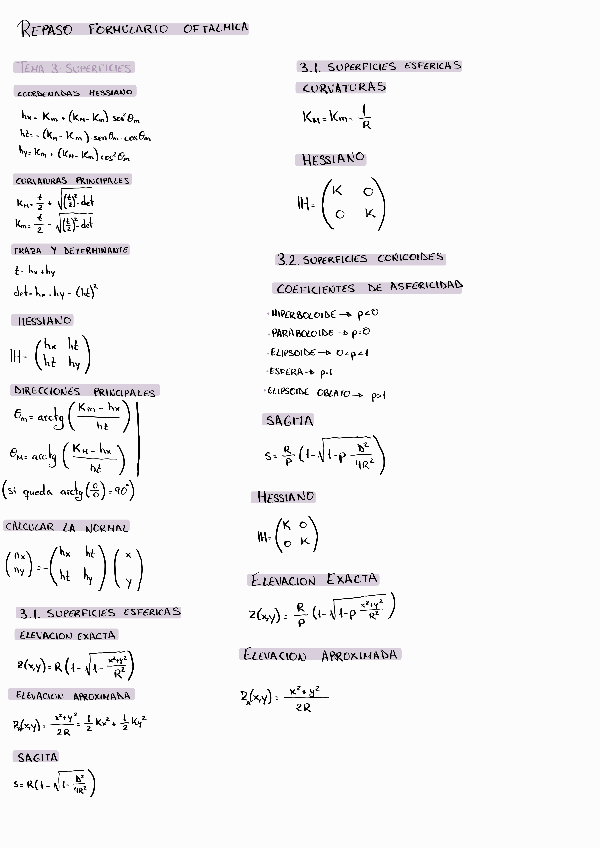 REPASO FORMULARIO OFTALMICA
TEMA 3: SUPERFICIES
COORDENADAS HESSIANO
hx = Km + (KM - Km) sen²θm
ht = -(KM - Km) · senθm · cosθm
hy = Km + (KM - Km) cos²θm
CURVATURAS PRINCIPALES
KM = t/2 + √((t/2)² - det)
Km = t/2 - √((t/2)² - det)
TRAZA Y DETERMINANTE
t = hx + hy
det = hx · hy - (ht)²
HESSIANO
IH = (hx ht
ht hy)
DIRECCIONES PRINCIPALES
θm = arctg ((Km - hx)/ht)
θM = arctg ((KM - hx)/ht)
(si queda arctg (0/0) = 90°)
CALCULAR LA NORMAL
(nx ny) = - (hx ht
ht hy) (x y)
3.1. SUPERFICIES ESFERICAS
ELEVACION EXACTA
Z(x,y) = R (1 - √(1 - (x²+y²)/R²))
ELEVACION APROXIMADA
ZA(x,y) = (x²+y²)/2R = 1/2 Kx² + 1/2 Ky²
SAGITA
S = R (1 - √(1 - D²/4R²))
3.1. SUPERFICIES ESFERICAS
CURVATURAS
KM = Km = 1/R
HESSIANO
IH = (K O
O K)
3.2. SUPERFICIES CONICOIDES
COEFICIENTES DE ASFERICIDAD
· HIPERBOLOIDE → p<0
· PARABOLOIDE → p=0
· ELIPSOIDE → 0<p<1
· ESFERA → p=1
· ELIPSOIDE OBLATO → p>1
SAGITA
S = R/P · (1 - √(1 - p D²/4R²))
HESSIANO
IH = (K O
O K)
ELEVACION EXACTA
Z(x,y) = R/P (1 - √(1 - p (x²+y²)/R²))
ELEVACION APROXIMADA
ZA(x,y) = (x²+y²)/2R